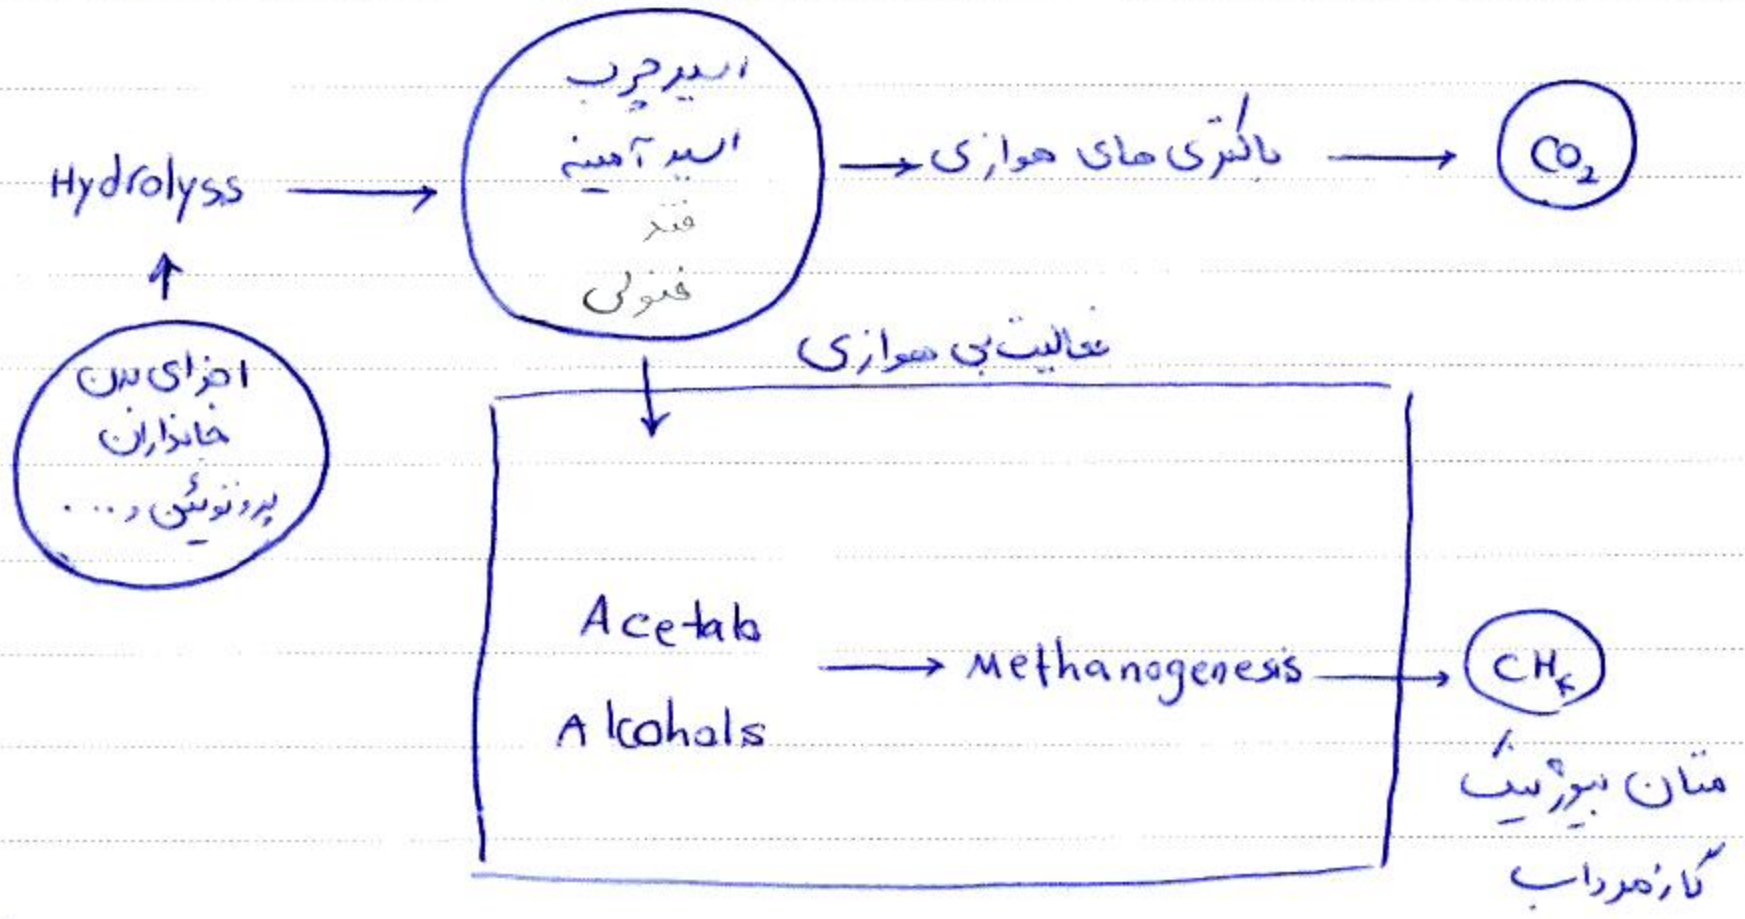 اسید چرب
اسید آمینه
قند
فنولی
Hydrolyss
باکتری های هوازی
CO2
اجزای بدن
جانداران
پروتوئین و ....
فعالیت بی هوازی
Acetab
Alcohols
Methanogenesis
CH۴
متان بیوژنیک
گاز مرداب